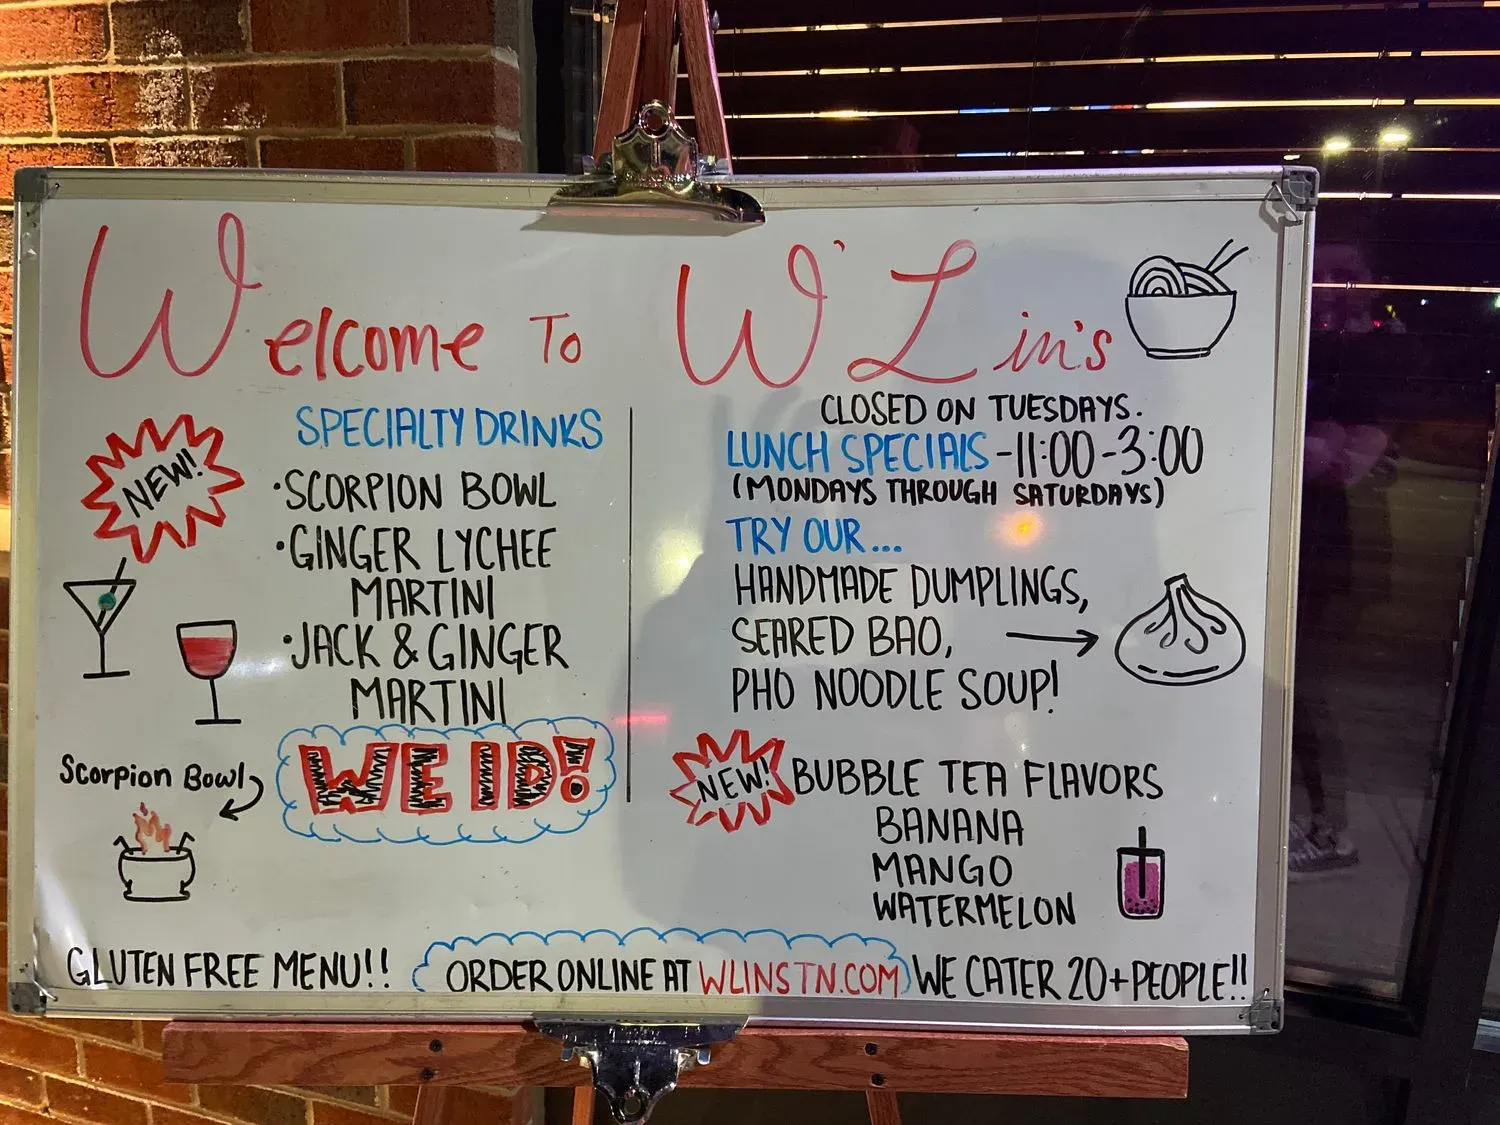 Welcome To W'Lin's
NEW!
SPECIALTY DRINKS
·SCORPION BOWL
·GINGER LYCHEE
MARTINI
·JACK & GINGER
MARTINI
WE ID!
Scorpion Bowl
CLOSED ON TUESDAYS.
LUNCH SPECIALS -11:00-3:00
(MONDAYS THROUGH SATURDAYS)
TRY OUR...
HANDMADE DUMPLINGS,
SEARED BAO,
PHO NOODLE SOUP!
NEW! BUBBLE TEA FLAVORS
BANANA
MANGO
WATERMELON
GLUTEN FREE MENU!! ORDER ONLINE AT WLINSTN.COM WE CATER 20+PEOPLE!!